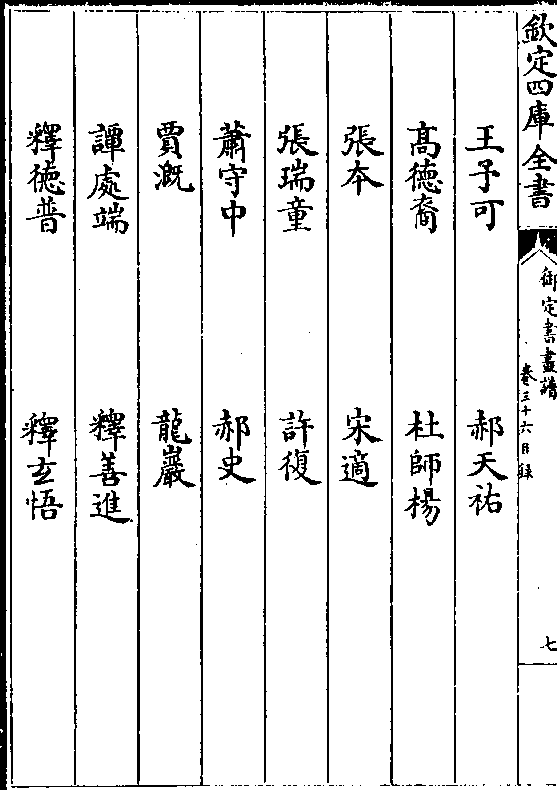 欽定四庫全書
御定書畫譜
卷三十六目錄
七
王予可 郝天祐
髙德裔 杜師楊
張本 宋適
張瑞童 許復
蕭守中 郝史
賈漑 龍巖
譚處端 釋善進
釋德普 釋玄悟